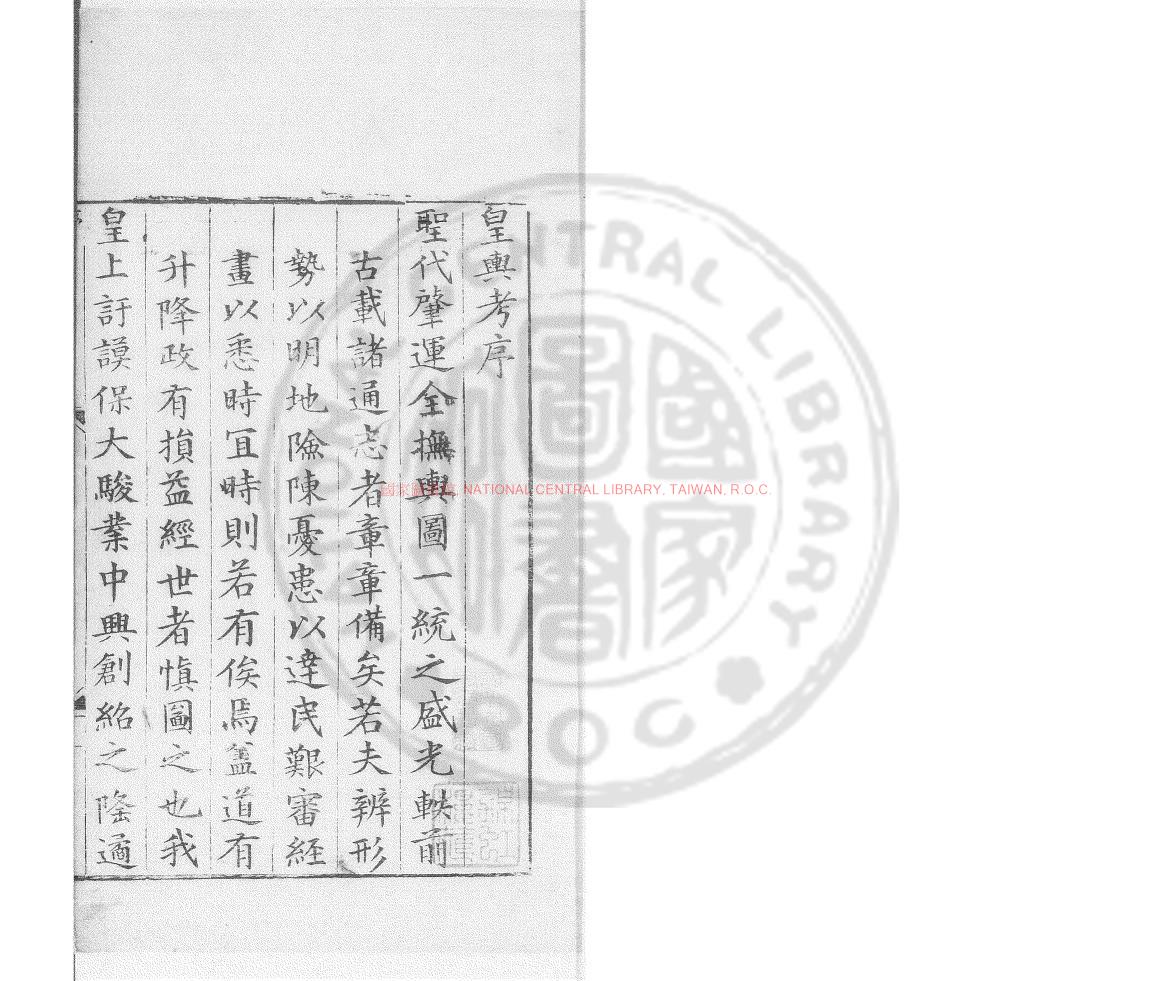 皇輿考序
聖代肇運全撫輿圖一統之盛光軼前
古載諸通志者章章備矣若夫辨形
勢以明地險陳憂患以達民艱審経
畫以悉時冝時則若有俟焉盖道有
升降政有損益經世者慎圖之也我
皇上訏謨保大駿業中興創紹之隆適
國家圖書館, NATIONAL CENTRAL LIBRARY, TAIWAN, R.O.C.
CENTRAL LIBRARY
R O C
國家圖書